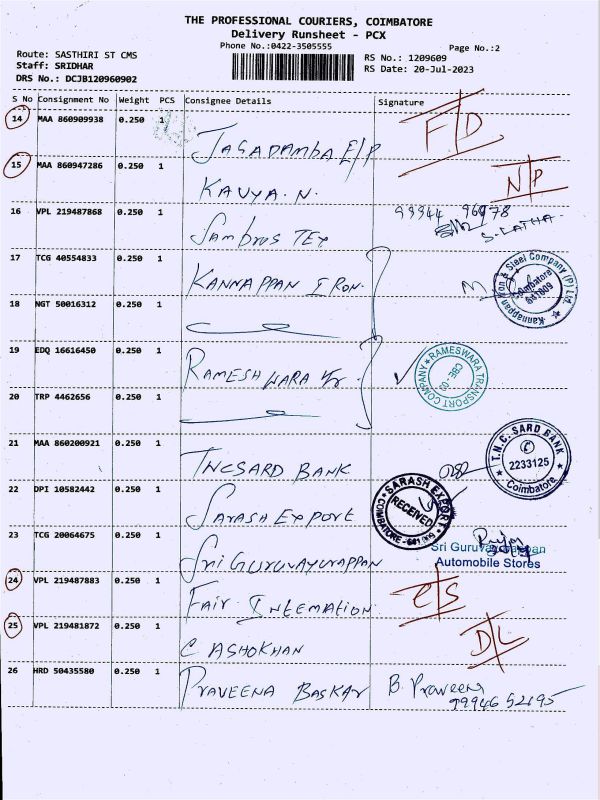 THE PROFESSIONAL COURIERS, COIMBATORE
Delivery Runsheet - PCX
Phone No.:0422-3505555
Page No.:2
Route: SASTHIRI ST CMS
Staff: SRIDHAR
DRS No.: DCJB120960902
RS No.: 1209609
RS Date: 20-Jul-2023
S No Consignment No Weight PCS Consignee Details Signature
14 MAA 860909938 0.250 1 JAGADAMBA E/P F/D
15 MAA 860947286 0.250 1 KAVYA. N. N/P
16 VPL 219487868 0.250 1 Sambros TEX 99944 96978
S. LATHA
17 TCG 40554833 0.250 1 KANNAPPAN IRON.
Kannappan Iron & Steel Company (P) Ltd.
Coimbatore
641009
18 NGT 50016312 0.250 1
19 EDQ 16616450 0.250 1 RAMESHWARA
RAMESWARA TRANSPORT COMPANY
CBE-
20 TRP 4462656 0.250 1
21 MAA 860200921 0.250 1 TNCSARD BANK
T.N.C. SARD BANK
2233125
Coimbatore
22 DPI 10582442 0.250 1 SARASH EXPORT
SARASH EXPORT
RECEIVED
COIMBATORE - 641
23 TCG 20064675 0.250 1 Sri GURUVAYURAPPAN
Sri Guruvayurappan
Automobile Stores
24 VPL 219487883 0.250 1 FAIR INTERNATION C/S
25 VPL 219481872 0.250 1 C ASHOKHAN D/L
26 HRD 50435580 0.250 1 PRAVEENA BASKAR B. Praveena